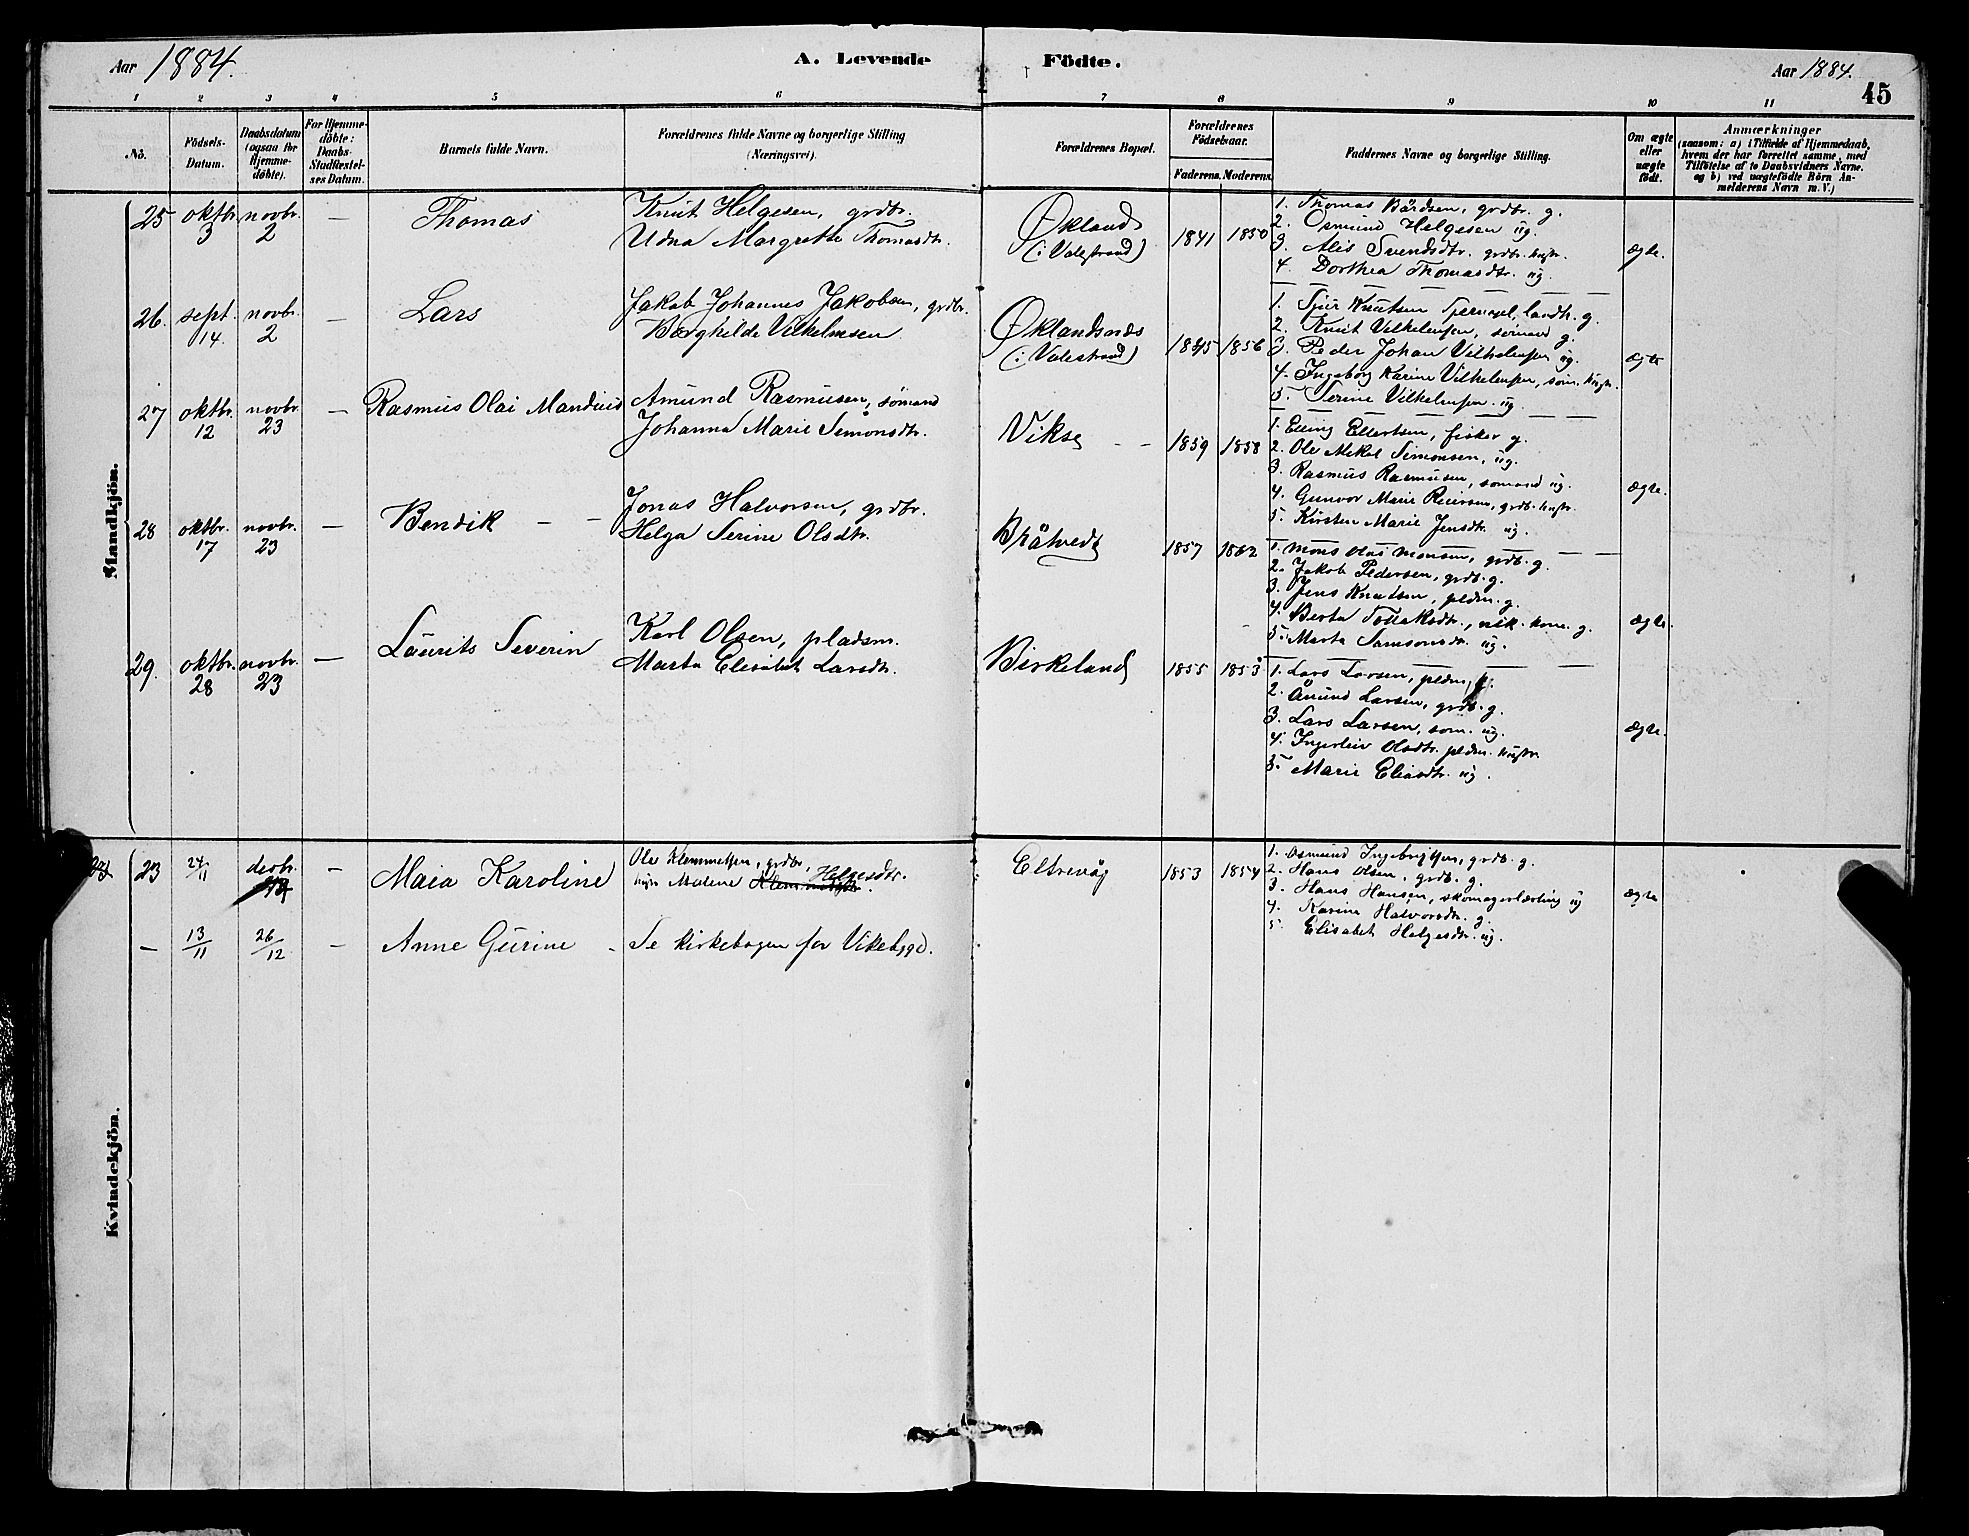 Aar 1884.
A. Levende Födte.
Aar 1884.
45
1 2 3 4 5 6 7 8 9 10 11
No.
Födsels-
Datum.
Daabsdatum
(ogsaa for
Hjemme-
döbte).
For Hjemme-
döbte:
Daabs-
Stadfæstel-
ses Datum.
Barnets fulde Navn.
Forældrenes fulde Navne og borgerlige Stilling
(Næringsvei).
Forældrenes Bopæl.
Forældrenes
Födselsaar.
Faderens. Moderens.
Faddernes Navne og borgerlige Stilling.
Om ægte
eller
uægte
födt.
Anmærkninger
(saasom: a) i Tilfælde af Hjemmedaab,
hvem der har forrettet samme, med
Tilföielse af to Daabsvidners Navne.
og b) ved uægtefödte Börn An-
melderens Navn m. V.)
Mandkjön.
25 oktbr. 3 novbr. 2 — Thomas
Knut Helgesen, grdbr.
Udna Margrethe Thomasdtr.
Økland
(i Valestrand)
1841 1850
1. Thomas Bårdsen, grdbr. g.
2. Osmund Helgesen ug.
3. Alis Svendsdtr. grdbr. hustr.
4. Dorthea Thomasdtr. ug.
ægte.
26. sept. 14. novbr. 2 — Lars
Jakob Johannes Jakobsen, grdbr.
Borghilde Vilhelmsen
Øklandsnæs
(i Valestrand)
1845 1856
1. Sjur Knutsen landh. g.
2. Knut Vilhelmsen, sömand g.
3. Peder Johan Vilhelmsen ug.
4. Ingeborg Karine Vilhelmsen, söm. hustr.
5. Serine Vilhelmsen ug.
ægte
27 oktbr. 12 novbr. 23 — Rasmus Olai Mandius
Amund Rasmusen, sömand
Johanna Marie Simonsdtr.
Vikse
1859 1858
1. Elling Ellertsen, fisker g.
2. Ole Mikal Simonsen, ug.
3. Rasmus Rasmusen, sömand ug.
4. Gunvor Marie grdb. hustr.
5. Kirsten Marie Jensdtr. ug.
ægte.
28 oktbr. 17 novbr. 23 — Bendik
Jonas Halvorsen, grdbr.
Helga Serine Olsdtr.
Bråtvedt
1857 1862
1. Mons Olai Monsen, grdb. g.
2. Jakob Pedersen, grdb. g.
3. Jens Knutsen, pldm. g.
4. Berta kone g.
5. Marta Samsonsdtr. ug.
ægte.
29. oktbr. 28 novbr. 23 — Laurits Severin
Karl Olsen, pladsm.
Marta Elisabet Larsdtr.
Birkeland
1855 1853
1. Lars Larsen, pldm. g.
2. Åmund Larsen, grdb. g.
3. Lars Larsen, söm. ug.
4. Ingerleiv Olsdtr. pldm. hustr.
5. Marie Eliasdtr. ug.
ægte.
Kvindekjön.
23 24/11 decbr. — Maia Karoline
Ole Klemmetsen, grdbr.
hustr. Malene Helgesdtr.
Eltrevåg
1853 1854
1. Osmund Ingebrigtsen, grdb. g.
2. Hans Olsen, grdb. g.
3. Hans Hansen, skomagerlærling ug
4. Karine Halvorsdtr. g.
5. Elisabet Helgesdtr. ug.
ægte
— 13/11 26/12 — Anne Gurine - Se kirkebogen for Vikebygd.